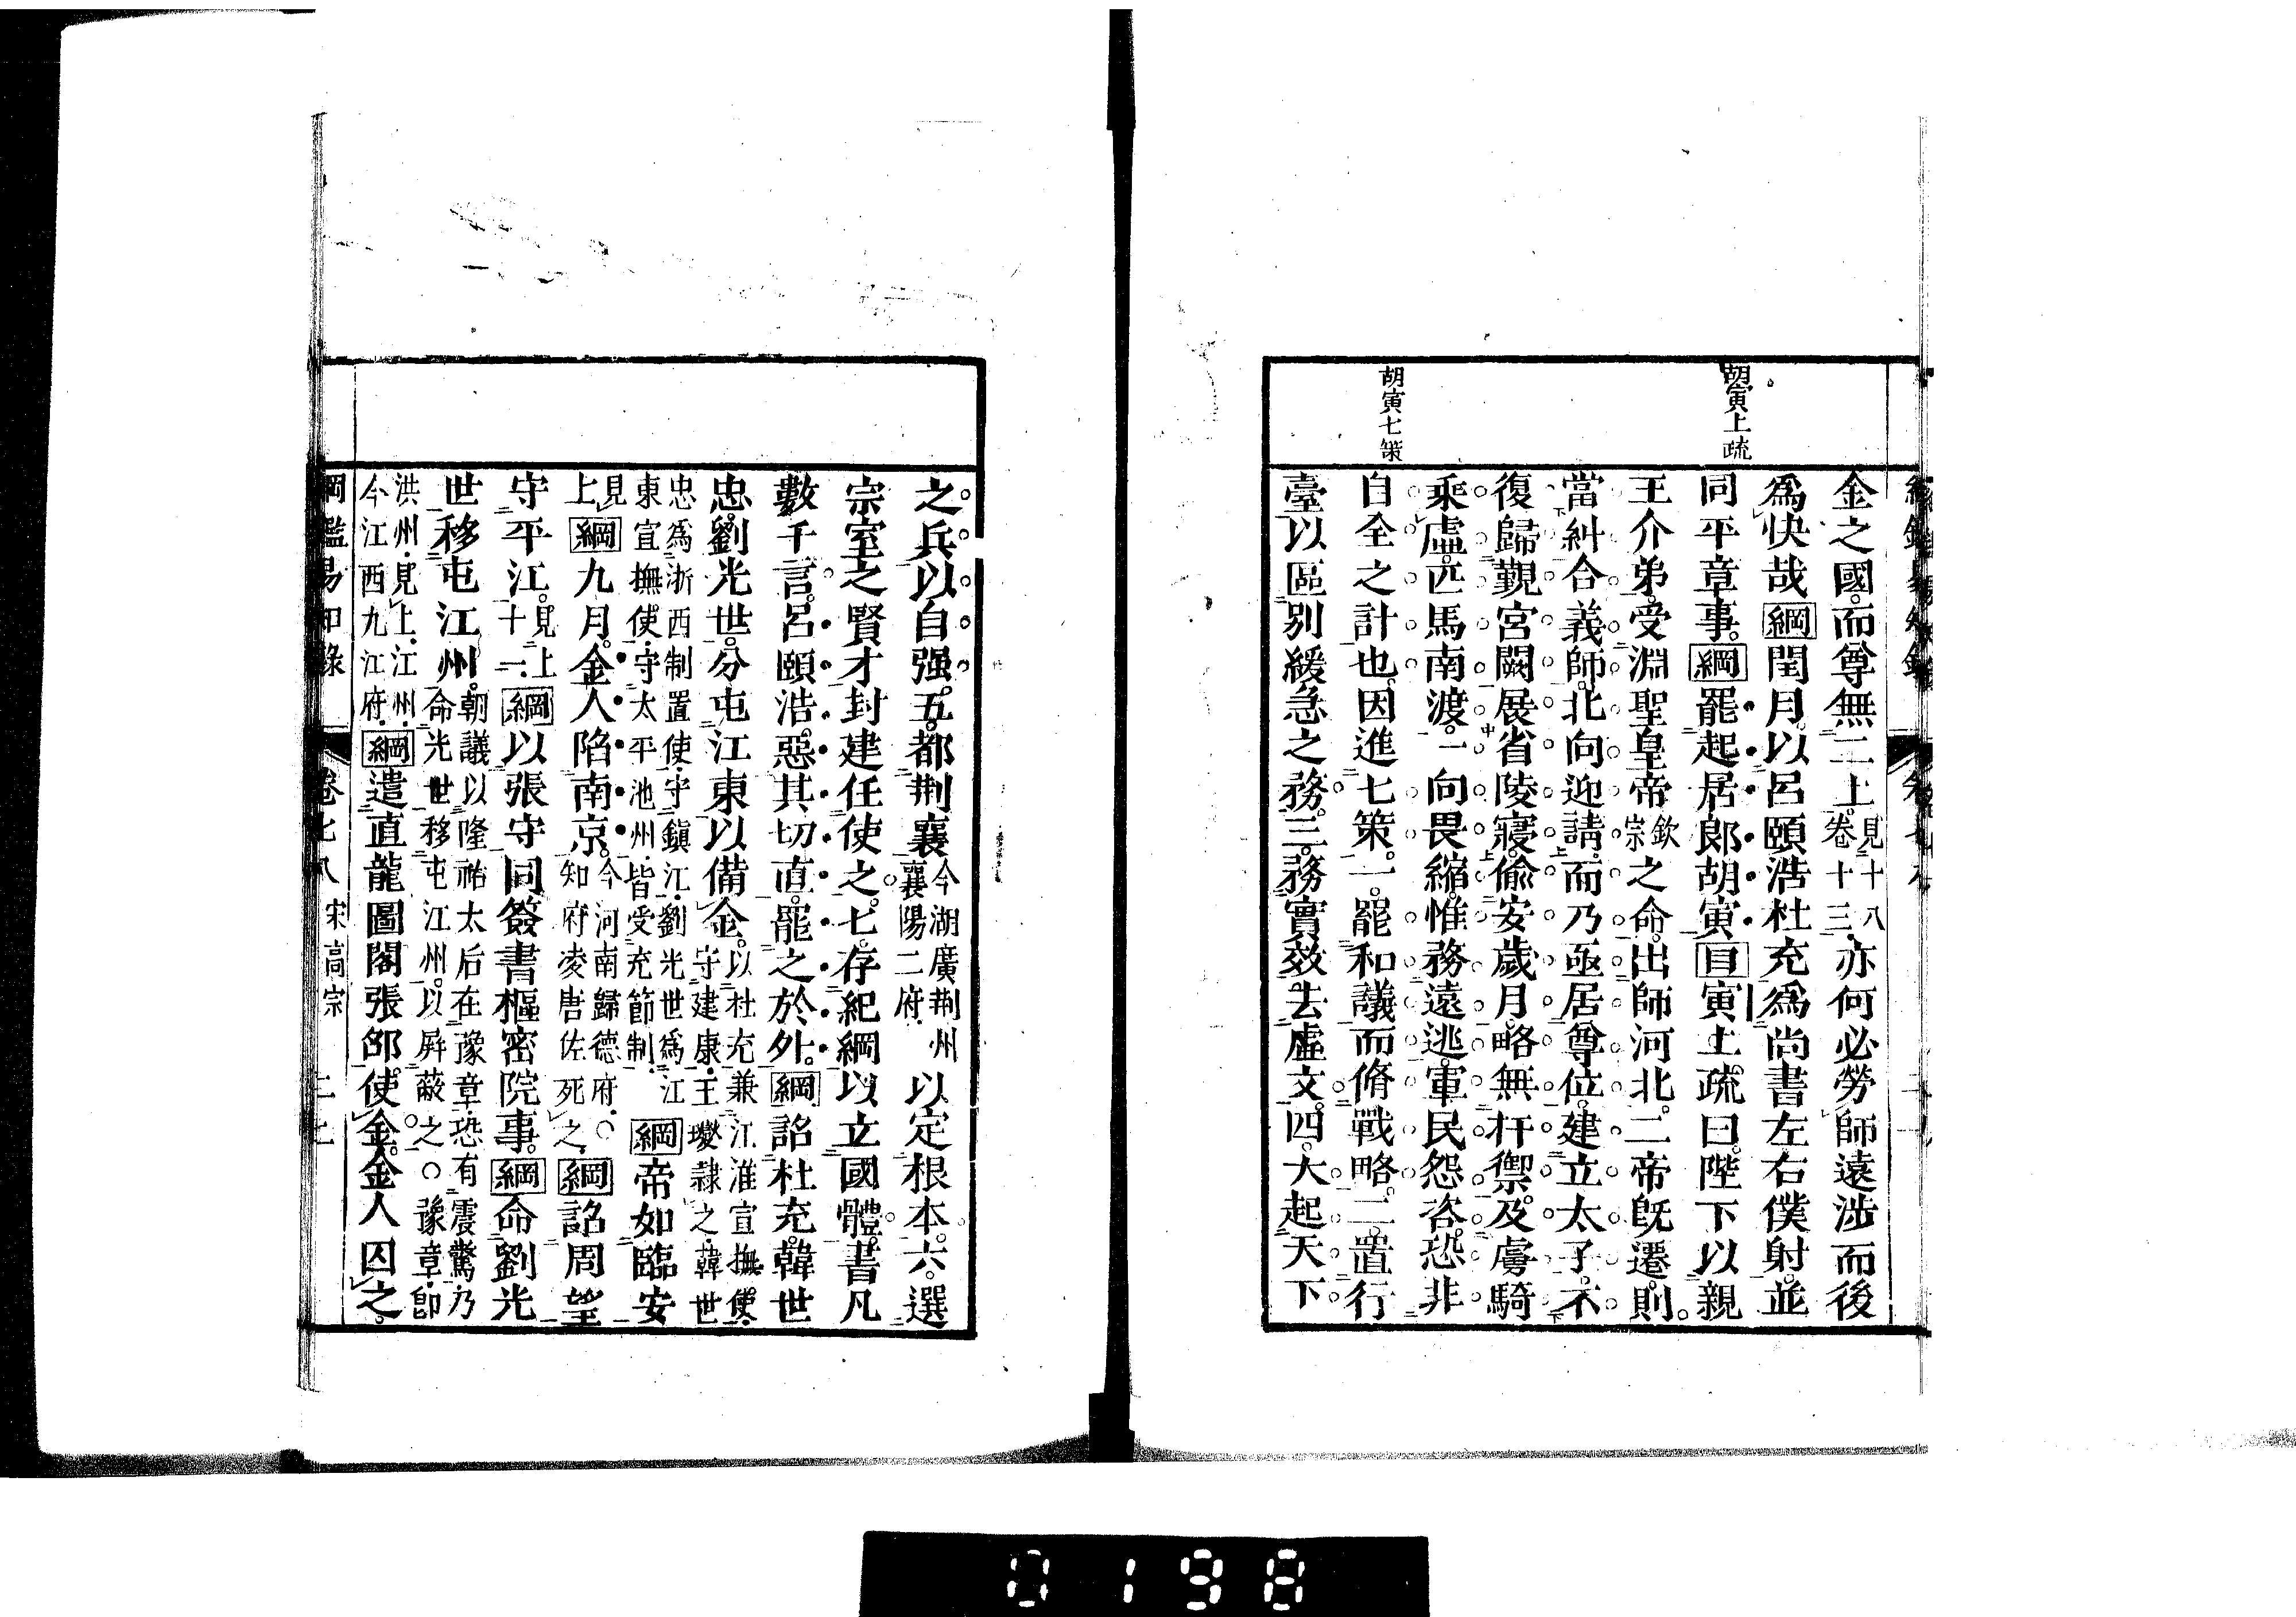 胡寅上疏
胡寅七策
金之國。而尊無二上。見十八卷十三。亦何必勞師遠涉而後
爲快哉綱閏月。以呂頤浩杜充爲尚書左右僕射。並
同平章事。綱罷起居郎胡寅目寅上疏曰。陛下以親
王介弟。受淵聖皇帝欽宗之命。出師河北。二帝旣遷。則
當糾合義師。北向迎請。而乃亟居尊位。建立太子。不
復歸覲宮闕。展省陵寢。偸安歲月。略無扞禦。及虜騎
乘虛。匹馬南渡。一向畏縮。惟務遠逃。軍民怨咨。恐非
自全之計也。因進七策。一。罷和議而脩戰略。二。置行
臺以區別緩急之務。三。務實效。去虛文。四。大起天下
之兵以自强。五。都荆襄今湖廣荆州襄陽二府。以定根本。六。選
宗室之賢才封建任使之。七。存紀綱以立國體。書凡
數千言。呂頤浩。惡其切直。罷之於外。綱詔杜充。韓世
忠。劉光世。分屯江東以備金。以杜充兼江淮宣撫使。守建康。王𤫉隷之。韓世
忠爲浙西制置使。守鎭江。劉光世爲江
東宣撫使。守太平池州。皆受充節制。綱帝如臨安
見上綱九月。金人陷南京。今河南歸德府。○知府凌唐佐死之。綱詔周望
守平江。見上十一。綱以張守同簽書樞密院事。綱命劉光
世移屯江州。朝議以隆祐太后在豫章。恐有震驚。乃命光世移屯江州。以屛蔽之。○豫章。卽
洪州。見上。江州。今江西九江府。綱遣直龍圖閣張邵。使金。金人囚之。
綱鑑易知錄 卷七八 宋高宗 二七